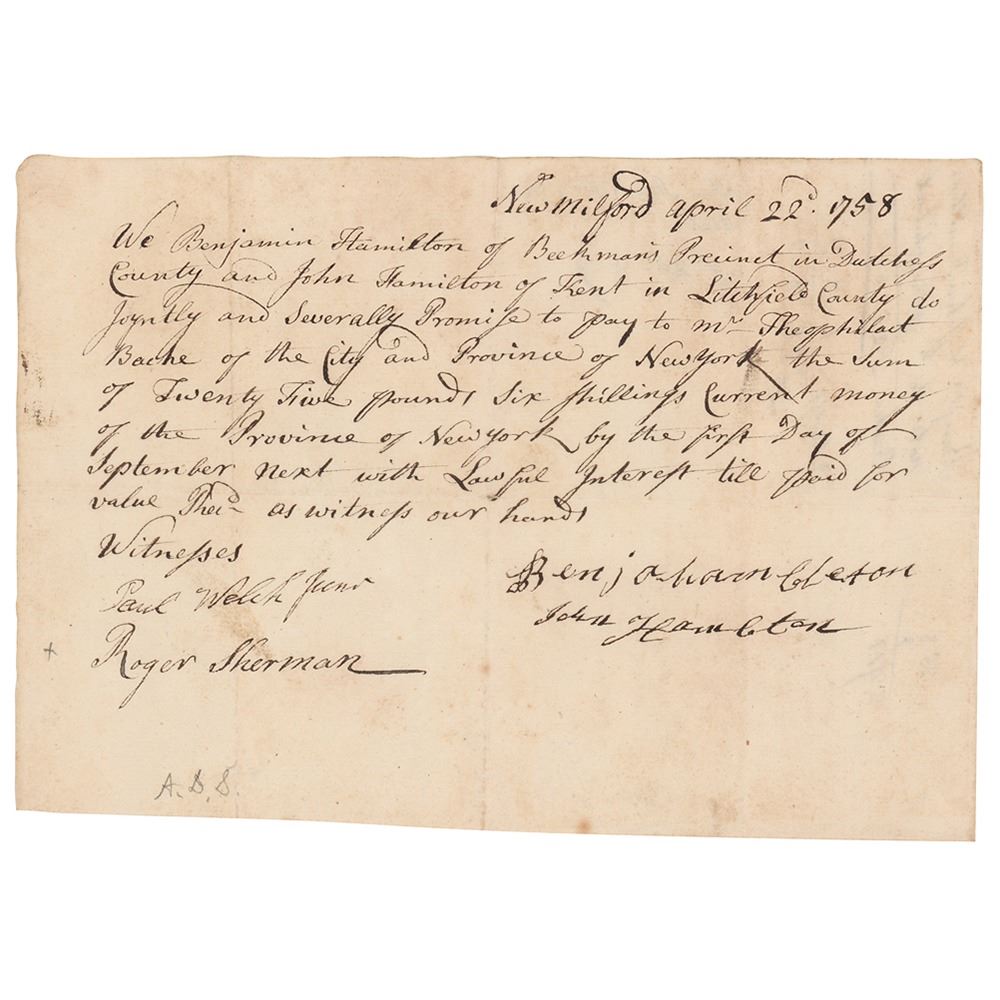 New Milford April 22d. 1758
We Benjamin Hamilton of Beekmans Precinct in Dutchess
County and John Hamilton of Kent in Litchfield County do
Joyntly and Severally Promise to pay to mr Theophilact
Bache of the City and Province of New York the Sum
of Twenty Five pounds Six shillings Current money
of the Province of New york by the first Day of
September next with Lawful Interest till paid for
value Recd as witness our hands
Witnesses
Paul Welch Junr
Benja hambleton
John Hambleton
Roger Sherman
A. D. S.